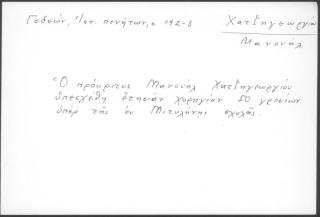 Γεδεών, Ἱστ. πενήτων, σ. 192-3
Χατζηγεωργίου
Μανουήλ
Ὁ πρόκριτος Μανουήλ Χατζηγεωργίου
ὑπεσχέθη ἐτησίαν χορηγίαν 50 γροσίων
ὑπέρ τῆς ἐν Μιτυλήνῃ σχολῆς.